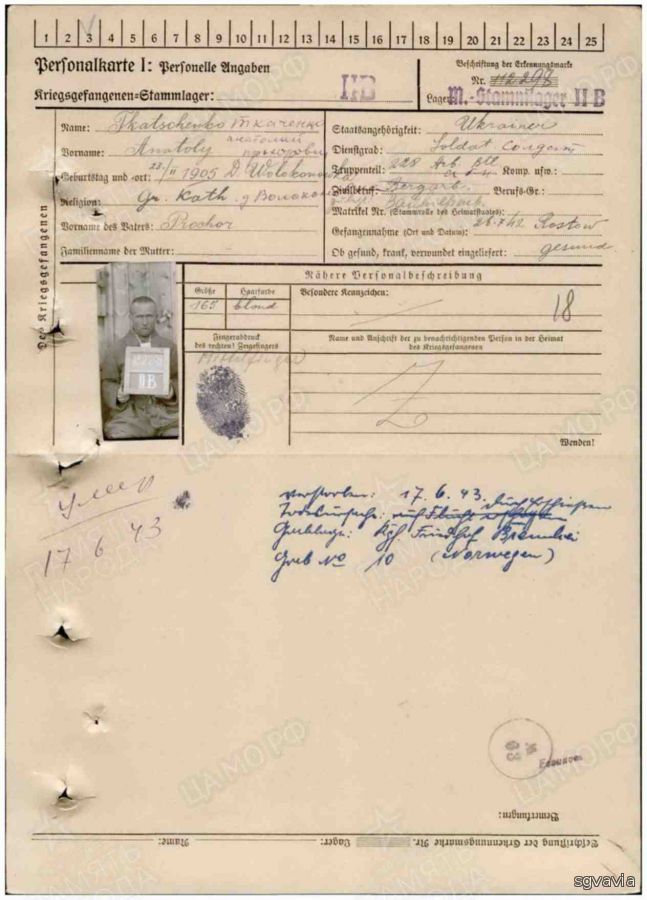 1 2 3 4 5 6 7 8 9 10 11 12 13 14 15 16 17 18 19 20 21 22 23 24 25
Personalkarte I: Personelle Angaben
Kriegsgefangenen-Stammlager: II B
Beschriftung der Erkennungsmarke
Nr.
Lager: M.-Stammlager II B
Des Kriegsgefangenen
Name: Tkatschenko Ткаченко
Vorname: Anatoly Анатолий
Geburtstag und -ort: 1905 D.
Religion: Gr. Kath.
Vorname des Vaters: Prochor
Familienname der Mutter:
Staatsangehörigkeit: Ukrainer
Dienstgrad: Soldat Солдат
Truppenteil: 228 Komp. usw.:
Zivilberuf: Bergarb. Berufs-Gr.:
Matrikel Nr. (Stammrolle des Heimatstaates):
Gefangennahme (Ort und Datum): 26.7.42 Rostow
Ob gesund, krank, verwundet eingeliefert: gesund
Nähere Personalbeschreibung
Größe Haarfarbe Besondere Kennzeichen:
165 blond
18
Fingerabdruck
des rechten! Zeigefingers
Mittelfinger
Name und Anschrift der zu benachrichtigenden Person in der Heimat
des Kriegsgefangenen
II B
Wenden!
умер
17 6 43
verstorben: 17. 6. 43. durch Erschießen
Todesursache: auf Flucht erschossen
Grablage: Kgf Friedhof
Grab No 10 (Norwegen)
Bemerkungen:
Beschriftung der Erkennungsmarke Nr. Lager: Name:
ЦАМО РФ
ПАМЯТЬ
НАРОДА
sgvavia